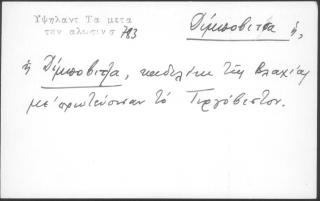 Υψηλαντ Τα μετα
την αλωσιν σ 793
Δίμποβιτσα ή,
ή Δίμποβιτζα, τῆς Βλαχίας
μέ πρωτεύουσαν τό Τιργόβιστον.